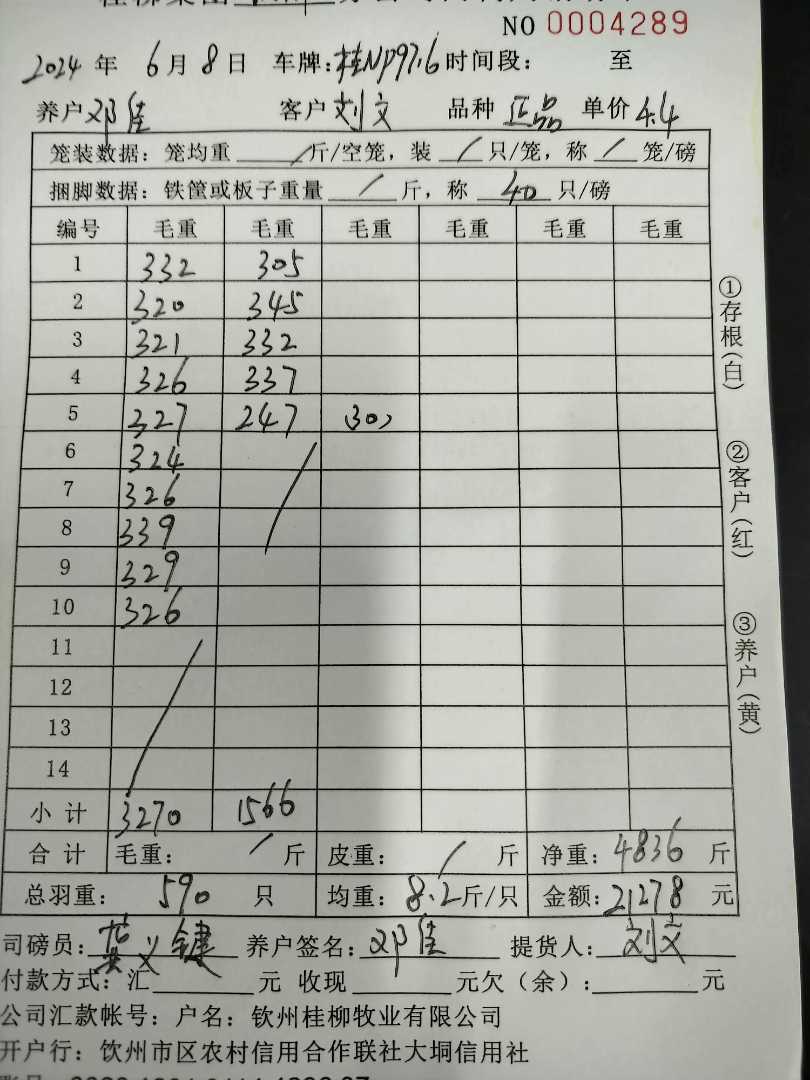 NO 0004289
2024 年 6 月 8 日 车牌: 桂NP97.6 时间段: 至
养户 邓佳 客户 刘文 品种 正品 单价 4.4
笼装数据: 笼均重 / 斤/空笼, 装 / 只/笼, 称 / 笼/磅
捆脚数据: 铁筐或板子重量 / 斤, 称 40 只/磅
编号 毛重 毛重 毛重 毛重 毛重 毛重
1 332 305
2 320 345
3 321 332
4 326 337
5 327 247 (30)
6 324
7 326
8 339
9 329
10 326
11
12
13
14
小计 3270 1566
合计 毛重: / 斤 皮重: / 斤 净重: 4836 斤
总羽重: 590 只 均重: 8.2 斤/只 金额: 21278 元
司磅员: 黄义键 养户签名: 邓佳 提货人: 刘文
付款方式: 汇 元 收现 元欠(余): 元
公司汇款帐号: 户名: 钦州桂柳牧业有限公司
开户行: 钦州市区农村信用合作联社大垌信用社
①存根(白)
②客户(红)
③养户(黄)